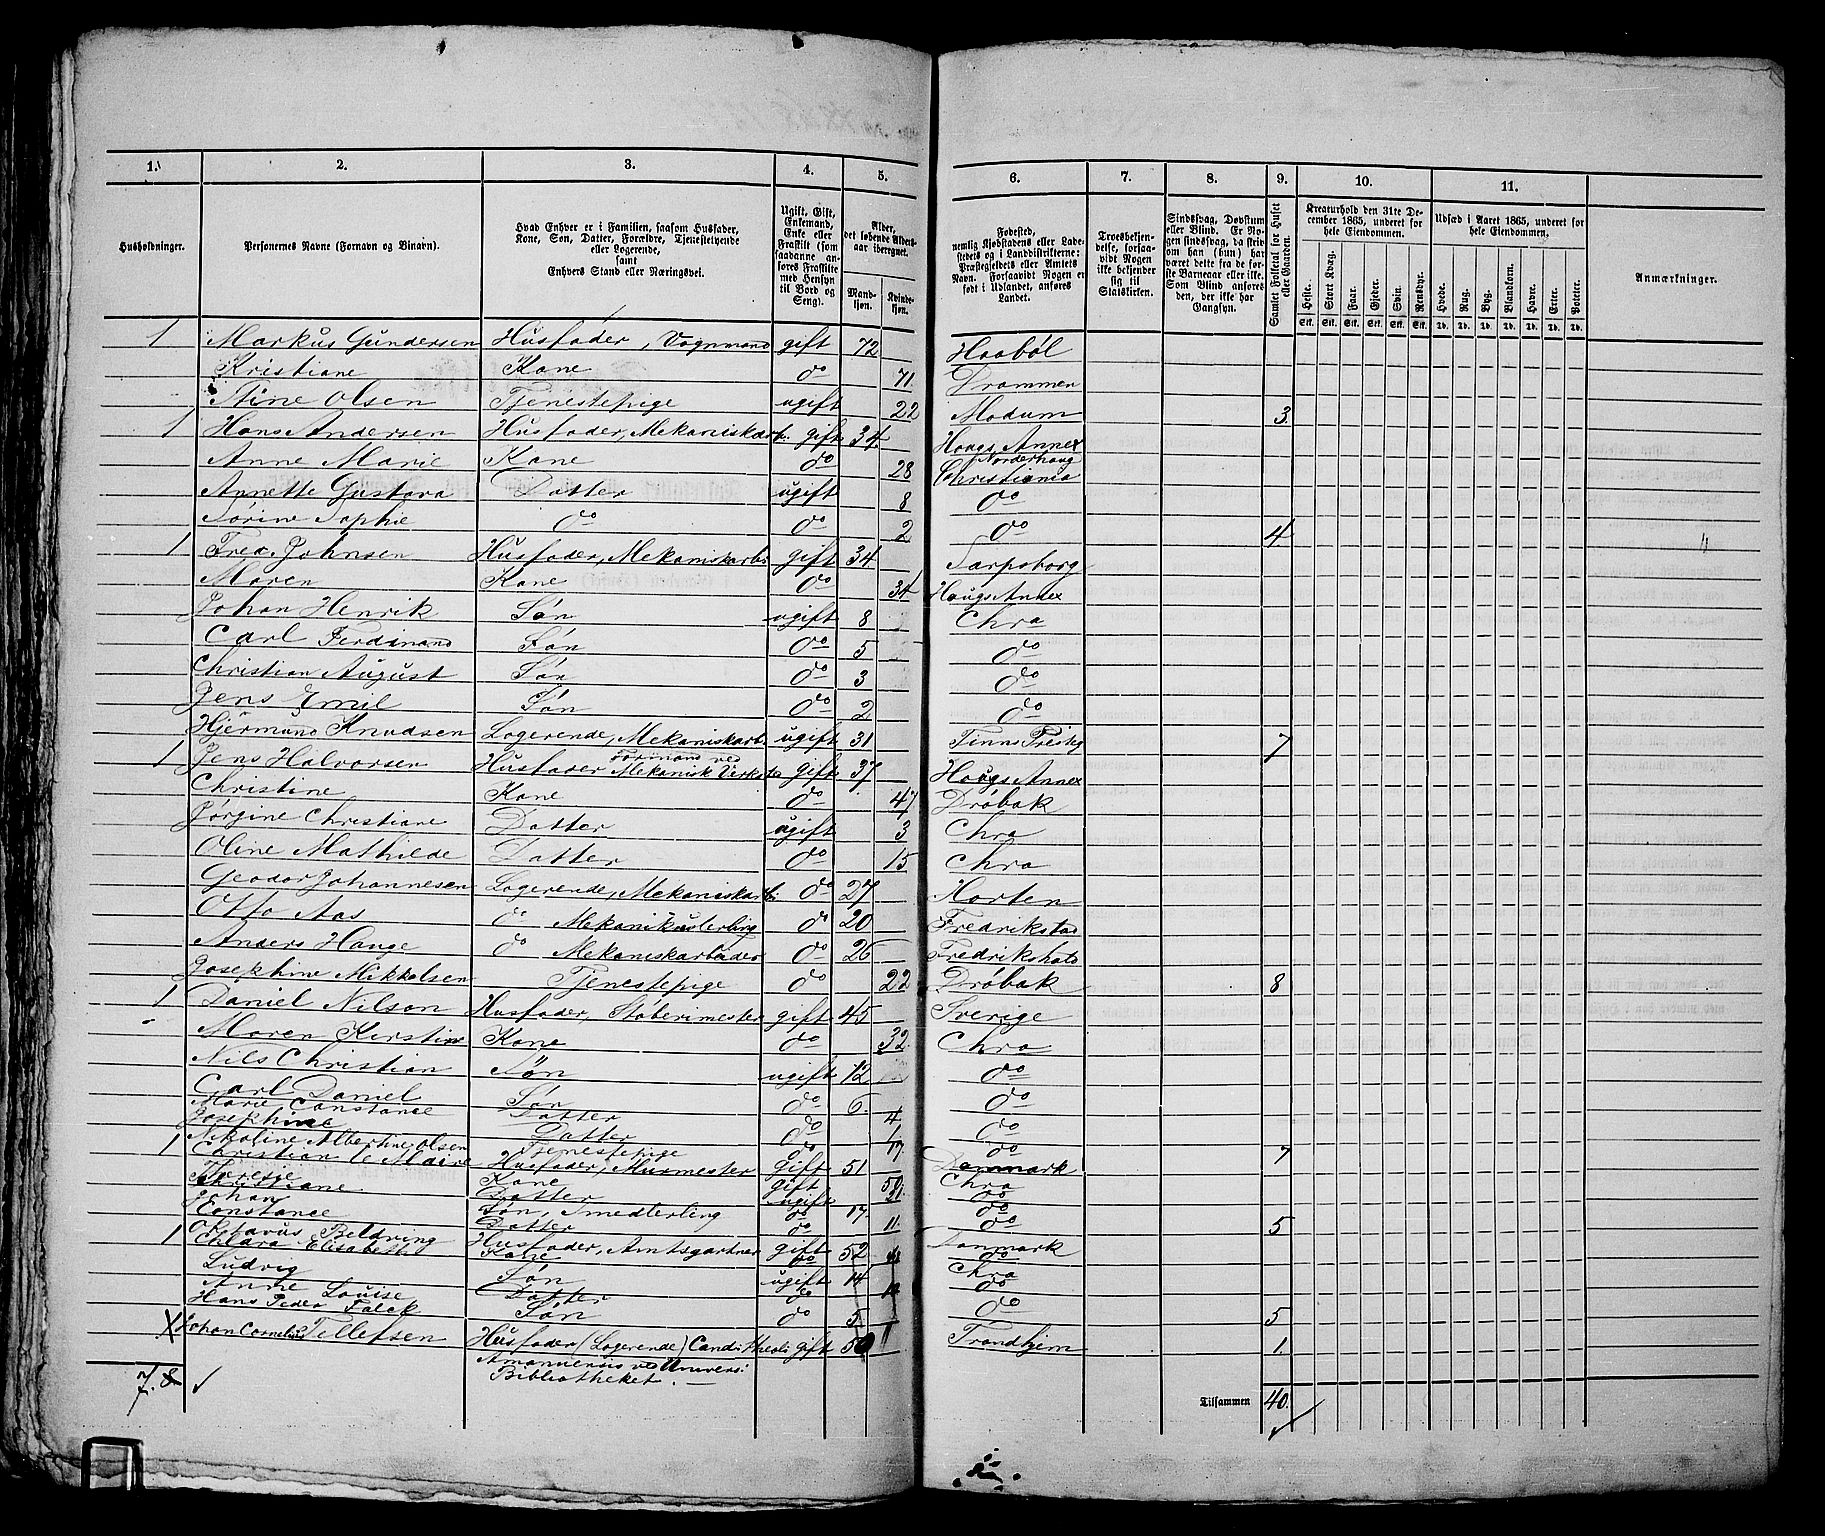 1. 2. 3. 4. 5. 6. 7. 8. 9. 10. 11.
Husholdninger.
Personernes Navne (Fornavn og Binavn).
Hvad Enhver er i Familien, saasom Husfader, Kone, Søn, Datter, Forældre, Tjenestetyende eller Logerende, samt Enhvers Stand eller Næringsvei.
Ugift, Gift, Enkemand, Enke eller Fraskilt (som saadanne anføres Fraskilte med Hensyn til Bord og Seng).
Alder, det løbende Aldersaar iberegnet.
Mandkjøn. Kvindekjøn.
Fødested, nemlig Kjøbstadens eller Ladestedets og i Landdistrikterne: Præstegjeldets eller Amtets Navn. Forsaavidt Nogen er født i Udlandet, anføres Landet.
Troesbekjendelse, forsaavidt Nogen ikke bekjender sig til Statskirken.
Sindssvag, Døvstum eller Blind. Er Nogen sindssvag, da skrives om han (hun) har været dette fra de første Barneaar eller ikke. Som Blind anføres den, der ikke har Gangsyn.
Samlet Folketal for Huset eller Gaarden.
Kreaturhold den 31te December 1865, underet for hele Eiendommen.
Heste. Stort Kvæg. Faar. Gjeder. Svin. Rensdyr.
Stk. Stk. Stk. Stk. Stk. Stk.
Udsæd i Aaret 1865, underet for hele Eiendommen.
Hvede. Rug. Byg. Blandkorn. Havre. Erter. Poteter.
Td. Td. Td. Td. Td. Td. Td.
Anmærkninger.
1 Markus Gundersen Husfader, Vognmand gift 72 Haabøl
Kristiane Kone do 71. Drammen
Stine Olsen Tjenestepige ugift 22 Modum 3.
1 Hans Andersen Husfader, Mekaniskarb. gift 34 Hougs Annex Norderhoug
Anne Marie Kone do 28 Christiania
Annette Gustava Datter ugift 8 do
Sørine Sophie do do 2 do 4
1 Fred. Johnsen Husfader, Mekaniskarbi gift 34 Sarpsborg
Maren Kone do 34 Hougs Annex
Johan Henrik Søn ugift 8 Chra
Carl Ferdinand Søn do 5 do
Christian August Søn do 3 do
Jens Emil Søn do 2 do
Hjermund Knudsen Logerende, Mekaniskarb. ugift 31 Tinns Presteg 7
1 Jens Halvorsen Husfader Formand ved Mekanisk Verkste gift 37 Hougs Annex
Christine Kone do 47 Drøbak
Jørgine Christiane Datter ugift 3 Chra
Oline Mathilde Datter do 15 Chra
Geodor Johannesen Logerende, Mekaniskarbi do 27 Horten
Otto Aas do Mekanikusterling do 20 Fredrikstad
Anders Hauge do Mekaniskarbider do 26 Fredrikshald
Josephine Mikkelsen Tjenestepige do 22 Drøbak 8
1 Daniel Nilson Husfader, Støberimester gift 45 Sverige
Maren Kirstine Kone do 32 Chra
Nils Christian Søn ugift 12 do
Carl Daniel Søn do 6. do
Marie Constance Datter do 4 do
Josephine Datter do 1
Nikoline Albertine Olsen Tjenestepige do 17 do 7
1 Christian le Maire Husfader, Murmester gift 51 Danmark
Therese Kone gift 50 Chra
Christiane Datter ugift 21 do
Johan Søn, Smedlerling do 17. do
Constance Datter do 11. do 5
1 Oktavus Beldring Husfader, Amtsgartner gift 52 Danmark
Chlara Elisabeth Kone do do
Ludvig Søn ugift 14 Chra
Anne Louise Datter do do
Hans Peder Falck Søn do 5 do 5
Johan Cornelius Tellefsen Husfader (Logerende) Candi Theoli gift 50 Trondhjem 1.
Amanuensis ved Univers: Bibliotheket. —
7. 8 ✓
7
Tilsammen 40.